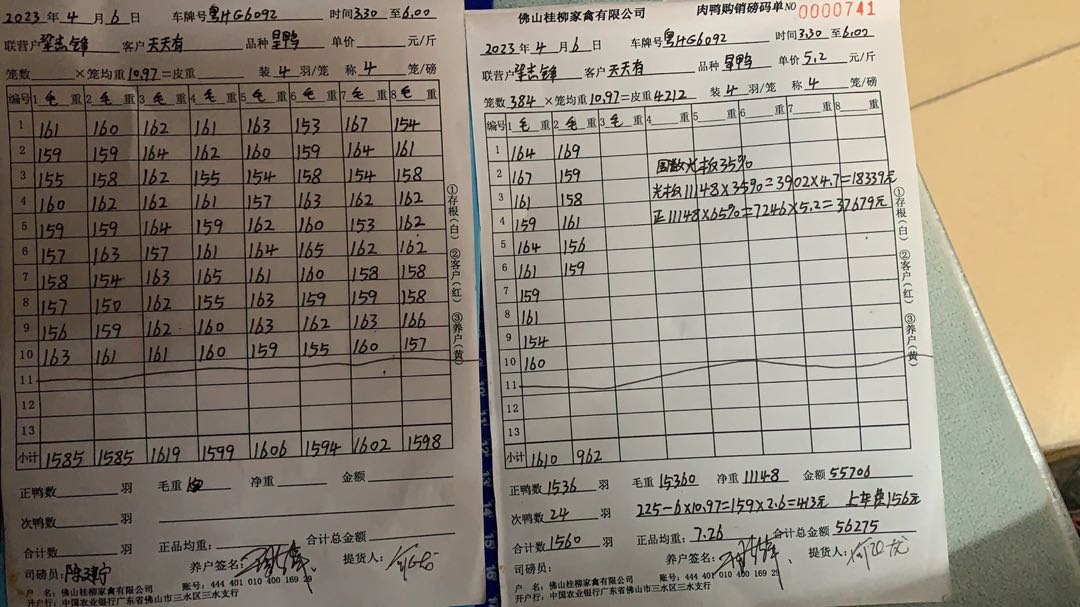 2023 年 4 月 6 日 车牌号 粤HG6092 时间 3.30 至 6.00
联营户 梁志锋 客户 天天有 品种 呈鸭 单价 元/斤
笼数 ×笼均重 10.97 =皮重 装 4 羽/笼 称 4 笼/磅
编号 1 毛 重 2 毛 重 3 毛 重 4 毛 重 5 毛 重 6 毛 重 7 毛 重 8 毛 重
1 161 160 162 161 163 153 167 154
2 159 159 164 162 160 159 164 161
3 155 158 162 155 154 158 154 158
4 160 162 162 161 157 163 162 162
5 159 159 164 159 162 160 153 162
6 157 163 157 161 164 165 162 162
7 158 154 163 165 161 160 158 158
8 157 150 162 155 163 159 159 158
9 156 159 162 160 163 162 163 166
10 163 161 161 160 159 155 160 157
11
12
13
小计 1585 1585 1619 1599 1606 1594 1602 1598
正鸭数 羽 毛重 净重 金额
次鸭数 羽
合计数 羽 正品均重: 合计总金额
养户签名: 提货人:
司磅员:
户 名: 佛山桂柳家禽有限公司 账号: 444 401 010 400 169 29
开户行: 中国农业银行广东省佛山市三水区三水支行
①存根(白) ②客户(红) ③养户(黄)
佛山桂柳家禽有限公司 肉鸭购销磅码单 NO 0000741
2023 年 4 月 6 日 车牌号 粤HG6092 时间 3.30 至 6.00
联营户 梁志锋 客户 天天有 品种 呈鸭 单价 5.2 元/斤
笼数 384 ×笼均重 10.97 =皮重 4212 装 4 羽/笼 称 4 笼/磅
编号 1 毛 重 2 毛 重 3 毛 重 4 重 5 重 6 重 7 重 8 重
1 164 169
2 167 159
3 161 158
4 159 161
5 164 156
6 161 159
7 159
8 161
9 154
10 160
11
12
13
小计 1610 962
光板35%
光板11148×35%=3902×4.7=18339元
正11148×65%=7246×5.2=37679元
正鸭数 1536 羽 毛重 15360 净重 11148 金额 55706
次鸭数 24 羽 225-6×10.97=159×2.6=413元 上车费156元
合计数 1560 羽 正品均重: 7.26 合计总金额 56275
养户签名: 提货人:
司磅员:
户 名: 佛山桂柳家禽有限公司 账号: 444 401 010 400 169 29
开户行: 中国农业银行广东省佛山市三水区三水支行
①存根(白) ②客户(红) ③养户(黄)